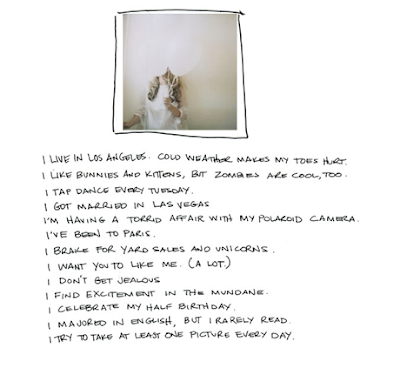 I LIVE IN LOS ANGELES. COLD WEATHER MAKES MY TOES HURT.
I LIKE BUNNIES AND KITTENS, BUT ZOMBIES ARE COOL, TOO.
I TAP DANCE EVERY TUESDAY.
I GOT MARRIED IN LAS VEGAS
I'M HAVING A TORRID AFFAIR WITH MY POLAROID CAMERA.
I'VE BEEN TO PARIS.
I BRAKE FOR YARD SALES AND UNICORNS.
I WANT YOU TO LIKE ME. (A LOT.)
I DON'T GET JEALOUS
I FIND EXCITEMENT IN THE MUNDANE.
I CELEBRATE MY HALF BIRTHDAY.
I MAJORED IN ENGLISH, BUT I RARELY READ.
I TRY TO TAKE AT LEAST ONE PICTURE EVERY DAY.